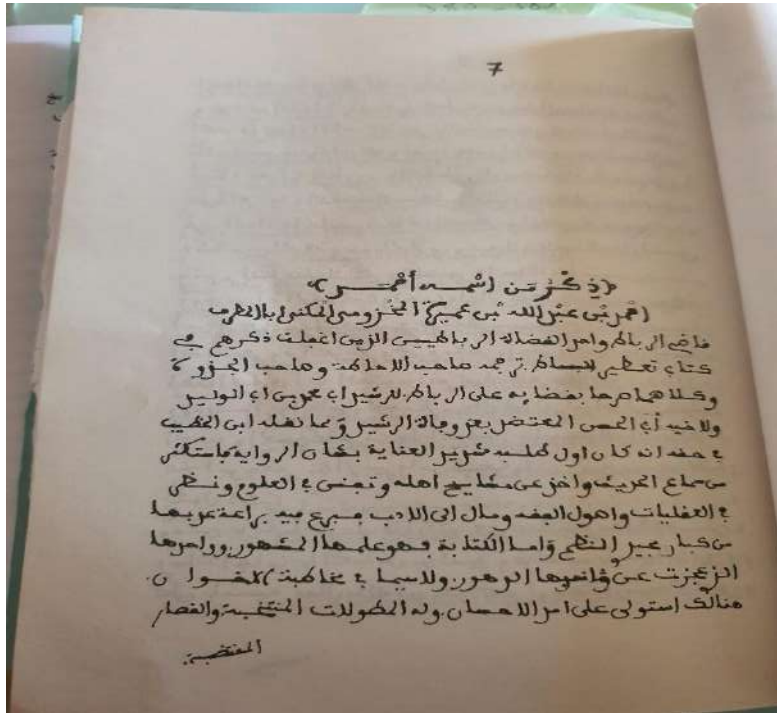 7
(ذكر من اسمه أحمد)
أحمد بن عبد الله بن عميرة المخزومي المكنى أبا المطرف
قاضي الرباط وأحد القضاة الرباطيين الذين اغفلت ذكرهم في
كتاب تعطير البساط ترجمه صاحب الاحاطة وصاحب الجذوة
وكلاهما صرحا بقضايه على الرباط للرشيد أبي محمد بن أبي الوليد
ولاخيه أبي الحسن المعتضد بعد وفاة الرشيد ومما نقله ابن الخطيب
في حقه انه كان اول طلبه شديد العناية بشان الرواية فاستكثر
من سماع الحديث واخذ عن مشايخ اهله وتفنن في العلوم ونظر
في العقليات واصول الفقه ومال الى الادب فبرع فيه براعة عد بها
من كبار مجيدي النظم واما الكتابة فهو علمها المشهور وواحدها
الذي عجزت عن ثانيها الدهور ولاسيما في مخاطبة الاخوان
هنالك استولى على امر الاحسان وله المطولات المنتخبة والقصار
المقتضبة